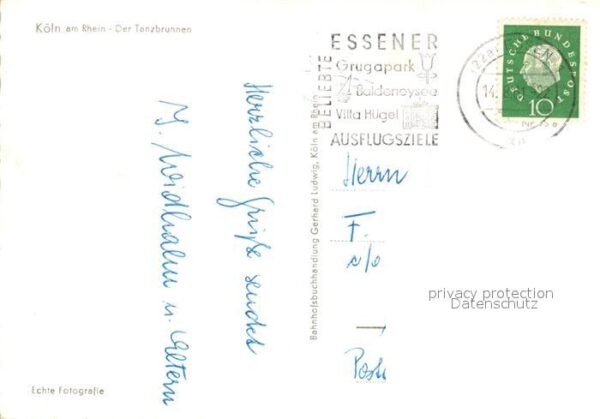 Köln am Rhein - Der Tanzbrunnen
Herzliche Grüße sendet
u. Eltern
Echte Fotografie
Bahnhofsbuchhandlung Gerhard Ludwig, Köln am Rhein
BELIEBTE
ESSENER
Grugapark
Baldeneysee
Villa Hügel
AUSFLUGSZIELE
ESSEN
14.
DEUTSCHE BUNDESPOST
10
Herrn
F.
c/o
privacy protection
Datenschutz